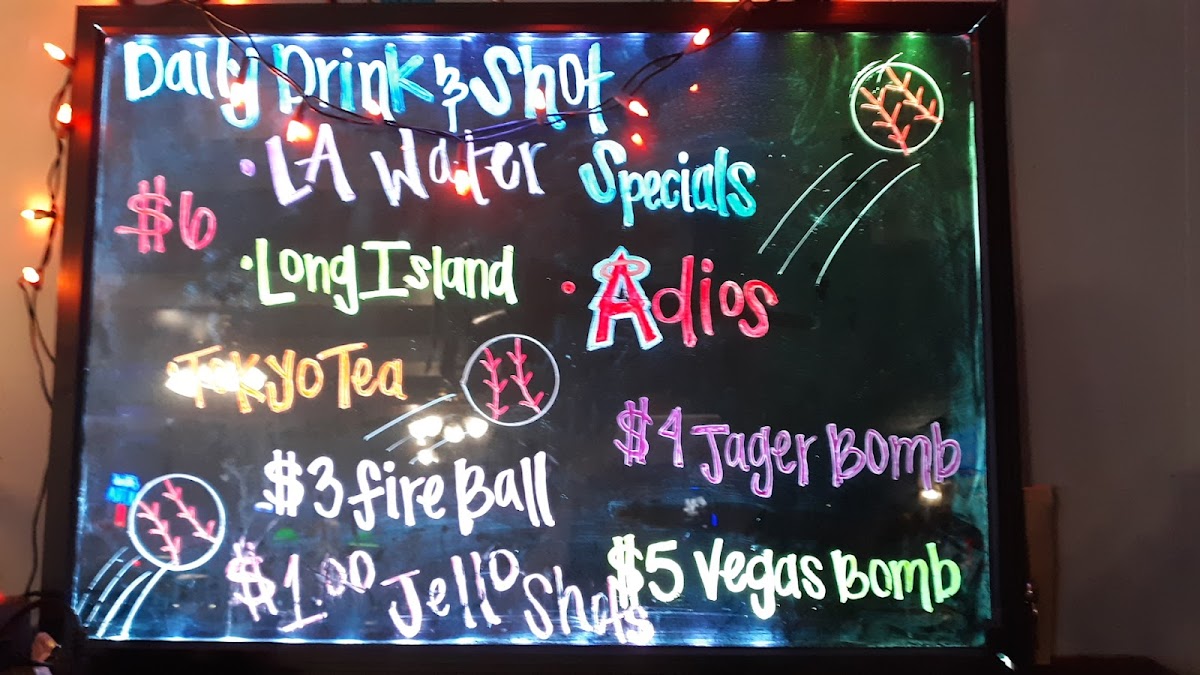 Daily Drink & Shot
Specials
• LA Water
$6
• Long Island
• Adios
• Tokyo Tea
$4 Jager Bomb
$3 fire Ball
$1.00 Jello Shots
$5 Vegas Bomb